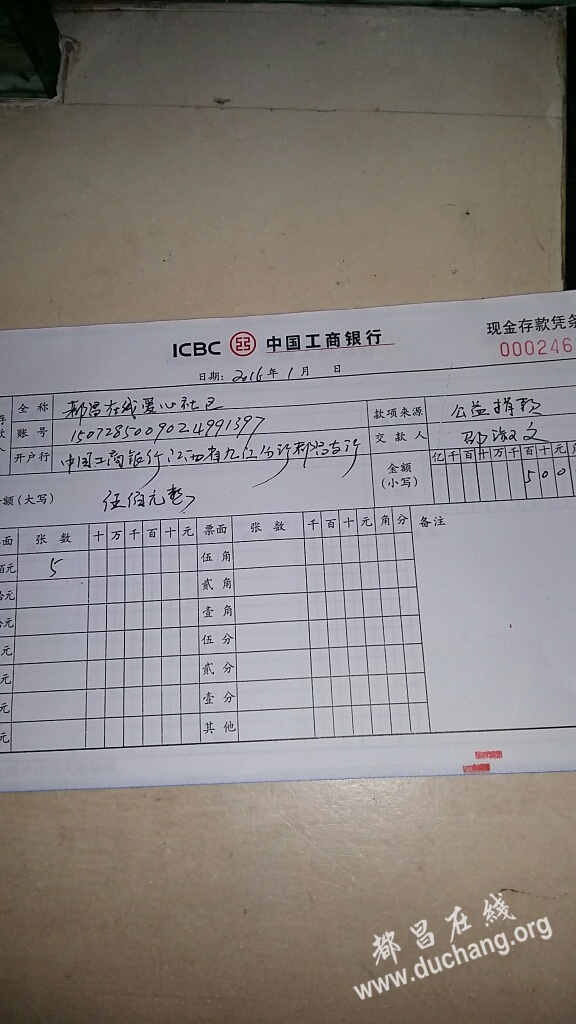 ICBC 中国工商银行
现金存款凭条
000246
日期：2016年1月 日
全称 都昌在线爱心社区
款项来源 公益捐款
账号 1507285009024991397
交款人
开户行 中国工商银行江西省九江分行都昌支行
金额（小写） 亿千百十万千百十元
500
额（大写） 伍佰元整
面 张数 十万千百十元 票面 张数 千百十元角分 备注
佰元 5 伍角
拾元 贰角
元 壹角
元 伍分
元 贰分
元 壹分
元 其他
都昌在线
www.duchang.org